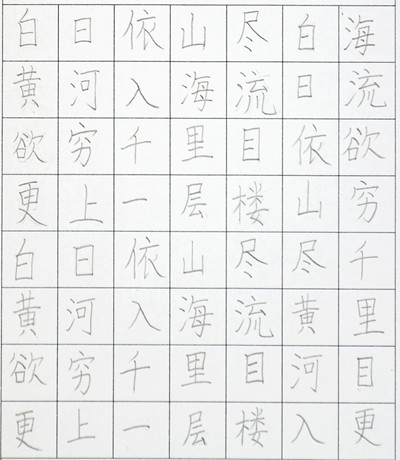 白日依山尽白海
黄河入海流日流
欲穷千里目依欲
更上一层楼山穷
白日依山尽尽千
黄河入海流黄里
欲穷千里目河目
更上一层楼入更